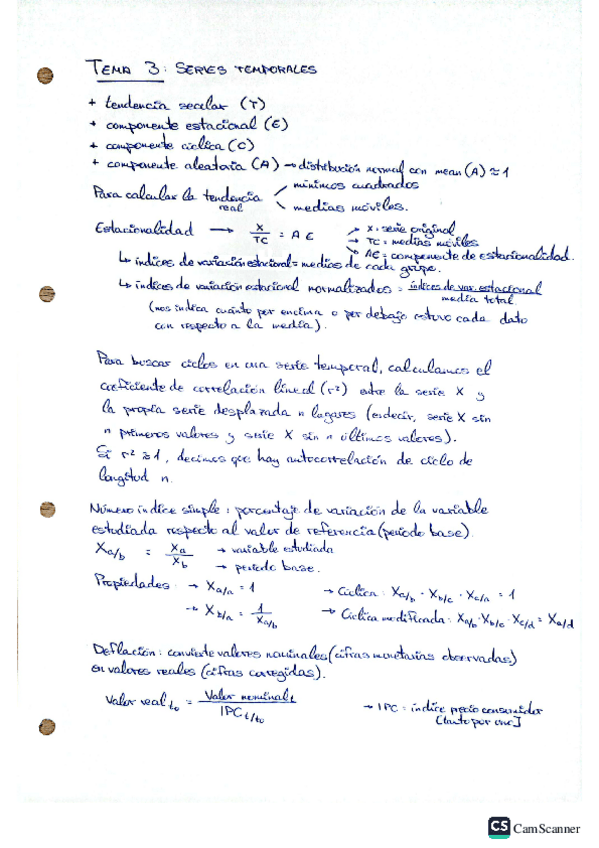 TEMA 3: SERIES TEMPORALES
+ tendencia secular (T)
+ componente estacional (E)
+ componente cíclica (C)
+ componente aleatoria (A) → distribución normal con mean (A) ≈ 1
Para calcular la tendencia real
mínimos cuadrados
medias móviles.
Estacionalidad → X/TC = AE
X = serie original
→ TC = medias móviles
AE = componente de estacionalidad.
↳ índices de variación estacional = medias de cada grupo.
↳ índices de variación estacional normalizados = índices de var. estacional / media total
(nos indica cuánto por encima o por debajo estuvo cada dato
con respecto a la media).
Para buscar ciclos en una serie temporal, calculamos el
coeficiente de correlación lineal (r²) entre la serie X y
la propia serie desplazada n lugares (es decir, serie X sin
n primeros valores y serie X sin n últimos valores).
Si r² ≈ 1, decimos que hay autocorrelación de ciclo de
longitud n.
Número índice simple: porcentaje de variación de la variable
estudiada respecto al valor de referencia (periodo base).
Xa/b = Xa/Xb → variable estudiada
→ periodo base.
Propiedades → Xa/a = 1
→ Cíclica: Xa/b · Xb/c · Xc/a = 1
→ Xb/a = 1/Xa/b
→ Cíclica modificada: Xa/b · Xb/c · Xc/d = Xa/d
Deflación: convierte valores nominales (cifras monetarias observadas)
en valores reales (cifras corregidas).
Valor real t₀ = Valor nominal t / IPC t/t₀
→ IPC = índice precio consumidor
[tanto por uno]
CS CamScanner